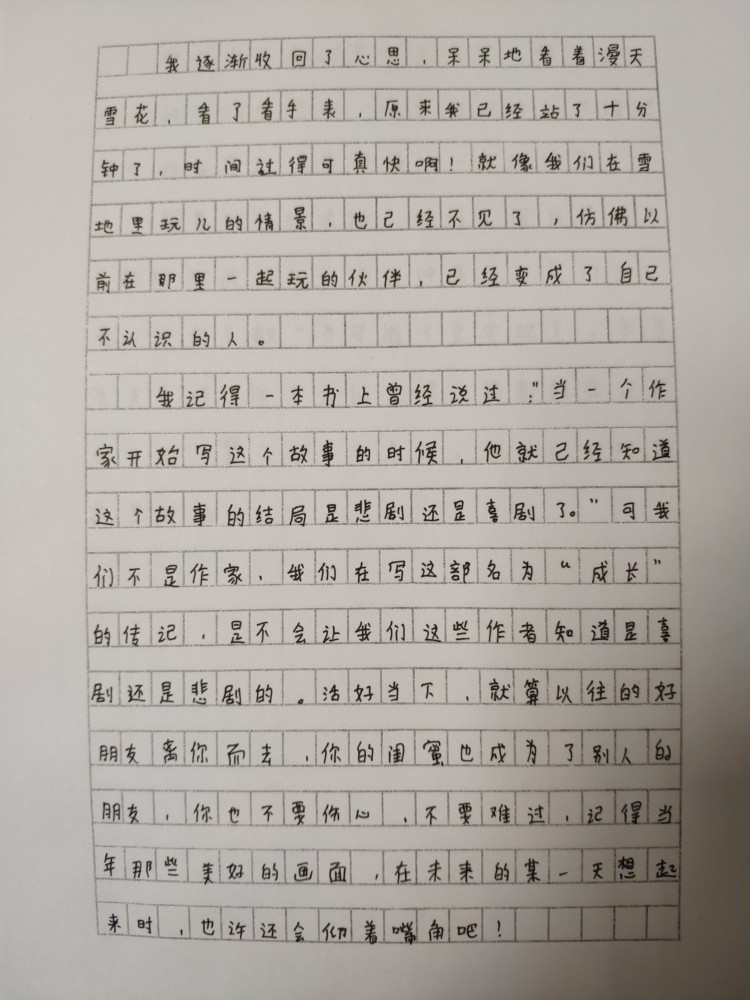 我逐渐收回了心思，呆呆地看着漫天
雪花，看了看手表，原来我已经站了十分
钟了，时间过得可真快啊！就像我们在雪
地里玩儿的情景，也已经不见了，仿佛以
前在那里一起玩的伙伴，已经变成了自己
不认识的人。
我记得一本书上曾经说过：“当一个作
家开始写这个故事的时候，他就已经知道
这个故事的结局是悲剧还是喜剧了。”可我
们不是作家，我们在写这部名为“成长”
的传记，是不会让我们这些作者知道是喜
剧还是悲剧的。活好当下，就算以往的好
朋友离你而去，你的闺蜜也成为了别人的
朋友，你也不要伤心，不要难过，记得当
年那些美好的画面，在未来的某一天想起
来时，也许还会仰着嘴角吧！